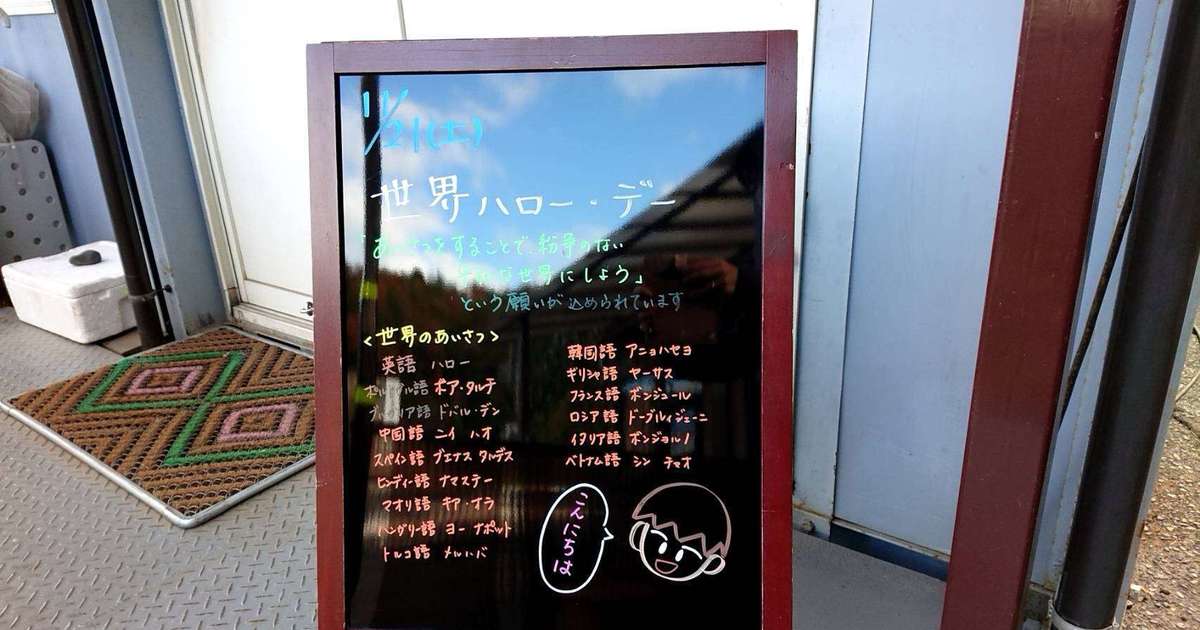 11/21(土)
世界ハロー・デー
「あいさつをすることで、紛争のない
世界にしよう」
という願いが込められています
<世界のあいさつ>
英語 ハロー
ポルトガル語 ボア・タルデ
ブルガリア語 ドバル・デン
中国語 ニイ ハオ
スペイン語 ブエナス タルデス
ヒンディー語 ナマステー
マオリ語 キア・オラ
ハンガリー語 ヨー ナポット
トルコ語 メルハバ
韓国語 アニョハセヨ
ギリシャ語 ヤーサス
フランス語 ボンジュール
ロシア語 ドーブルィジェーニ
イタリア語 ボンジョルノ
ベトナム語 シン チャオ
こんにちは